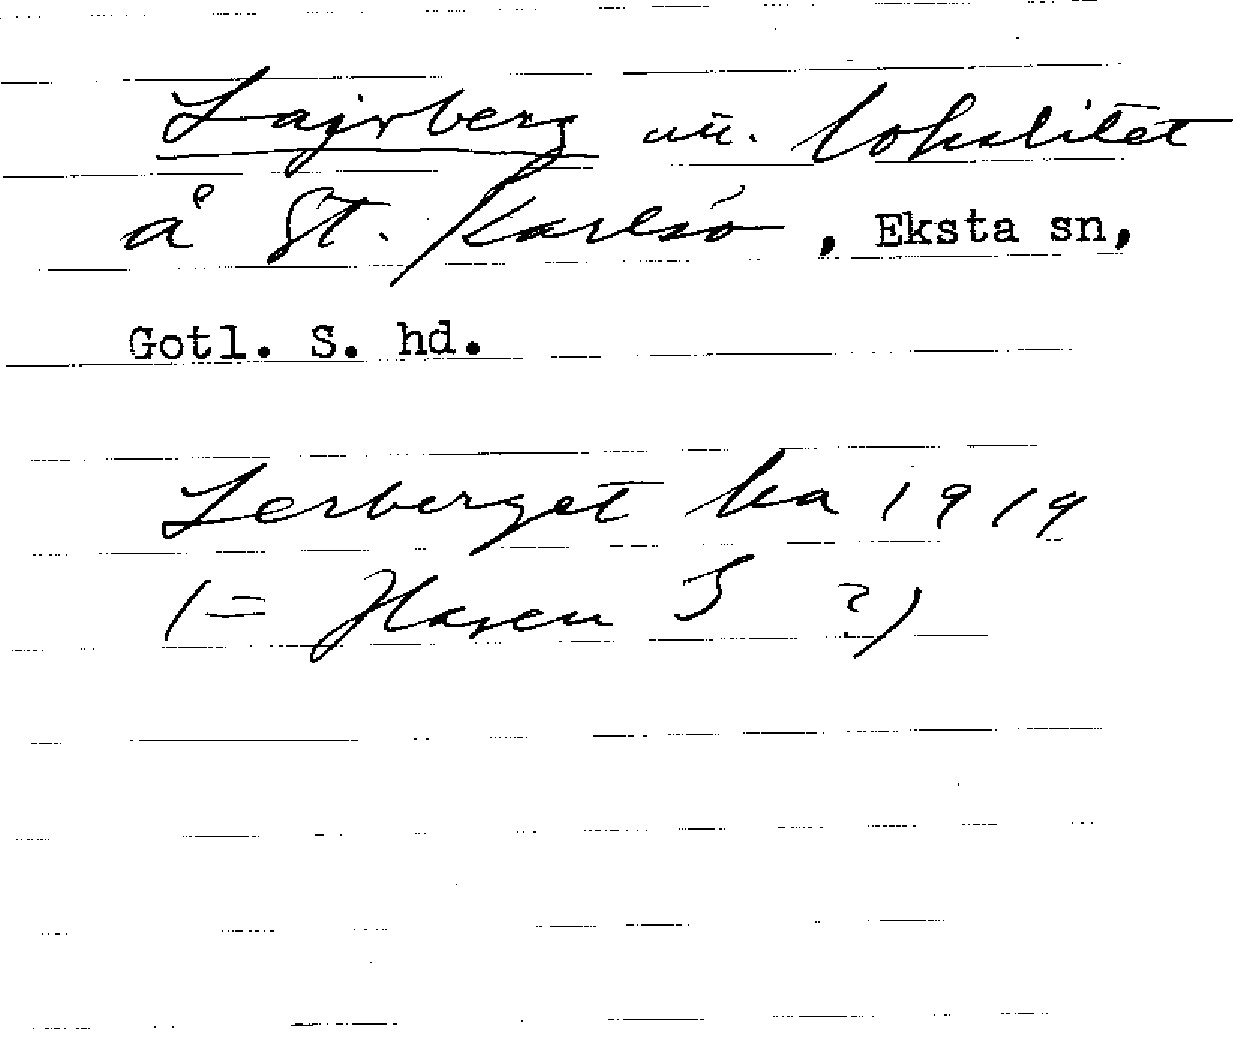 Lajrberg
lokalitet
å St. Karlsö, Eksta sn,
Gotl. S. hd.
Lerberget ka 1919
(= Hasen 5 ?)